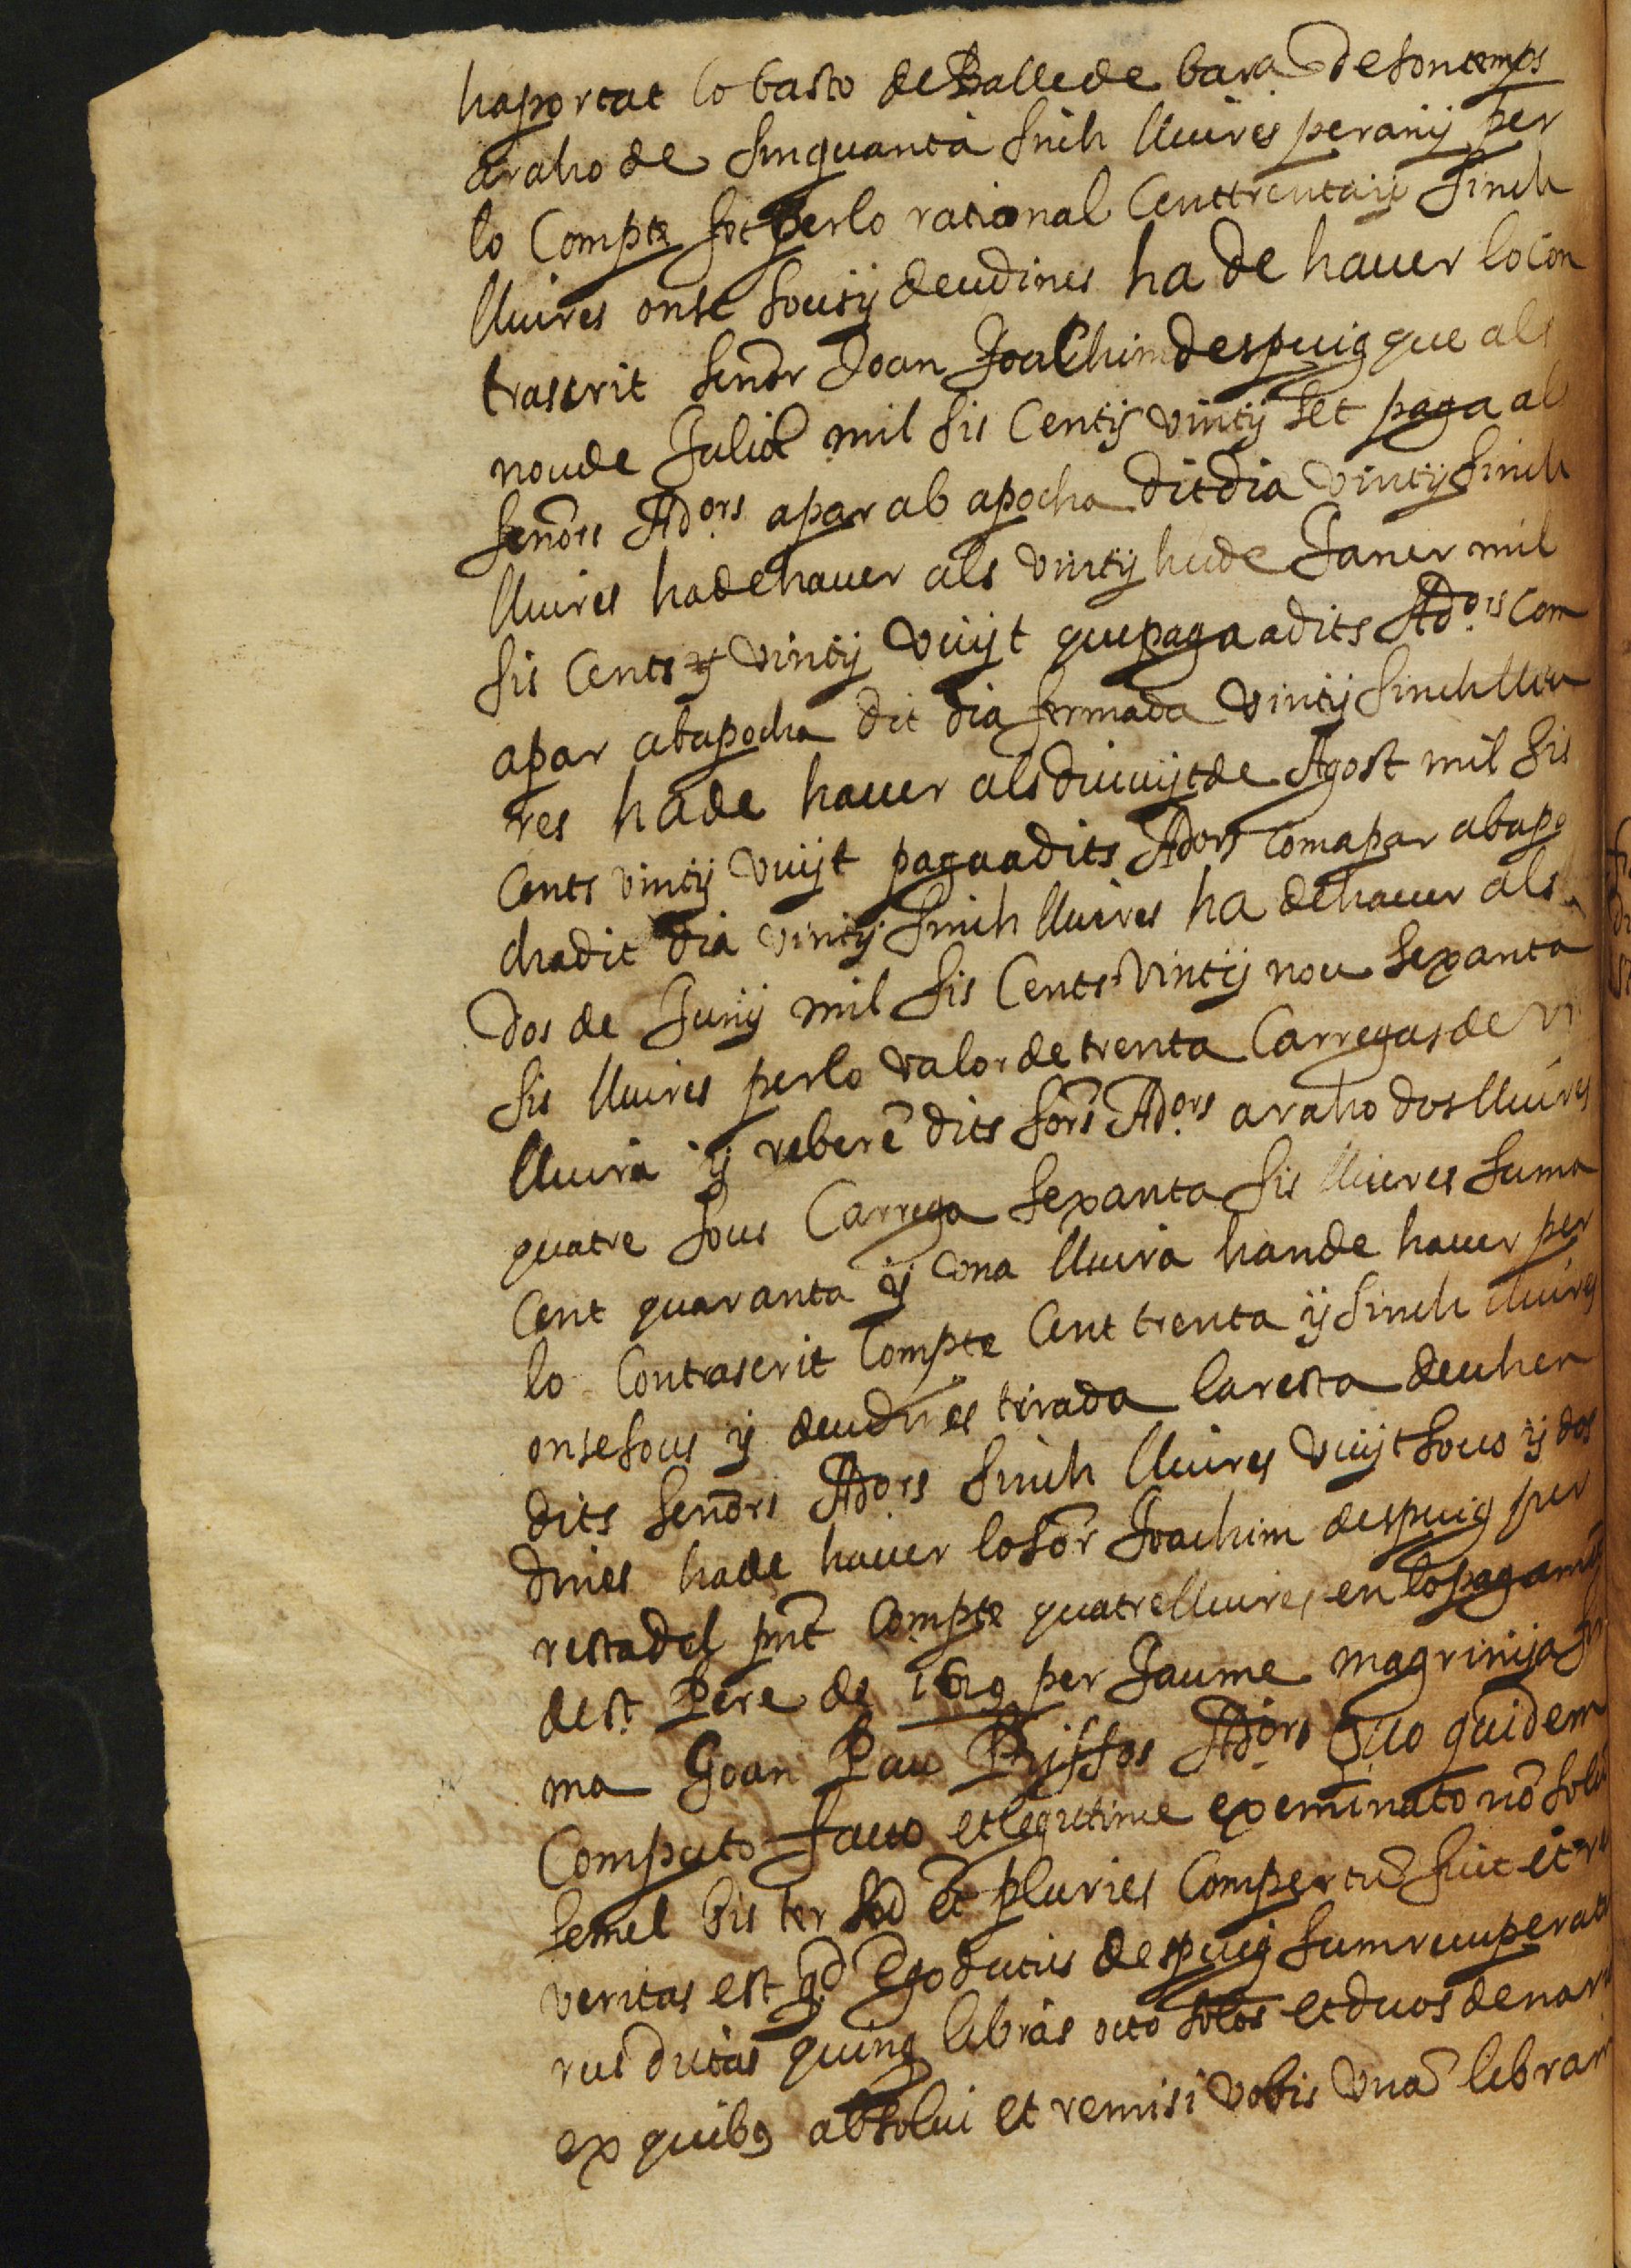 haportat lo basto de Balle de bara de son temps
a raho de sinquanta sinch lliures per anij per
lo Compte fet per lo rational Cent trenta ij sinch
lliures onse sous ij deu dines ha de hauer lo con
trascrit senor Joan Joachim despuig que als
nou de Juliol mil sis Centij vintij set paga als
senors Adors apar ab apocha dit dia vintij sinch
lliures ha de hauer als vintij hu de Janer mil
sis Cents ij vintij vuijt que paga a dits Adors Com
apar ab apocha dit dia fermada vintij sinch lliu
res ha de hauer als diuuijt de Agost mil sis
Cents vintij vuijt paga a dits Adors Com apar ab apo
cha dit dia vintij sinch lliures ha de hauer als
dos de Junij mil sis Cents vintij nou sexanta
sis lliures per lo valor de trenta Carregas de vi
lliura ij reberē dits sors Adors a raho dos lliures
quatre sous Carrega sexanta sis lliures suma
Cent quaranta ij una lliura han de hauer per
lo Contrascrit Compte Cent trenta ij sinch lliures
onse sous ij deu dines tirada la resta deuhen
dits senors Adors sinch lliures vuijt sous ij dos
dines ha de hauer lo sor Joachim despuig per
resta del pnt Compte quatre lliures en lo pagamt
de st Pere de 1629 per Jaume magrinija
ma Joan Pau Rissos Adors Quo quidem
Computo facto et legittime exeminato nō solū
semel bis ter sed et pluries Compertū fuit et rei
veritas est qd Ego dictus despuig sum recuperatu
rus dictas quinq libras octo solos et duos denar
ex quibus absolui et remisi vobis unā libram